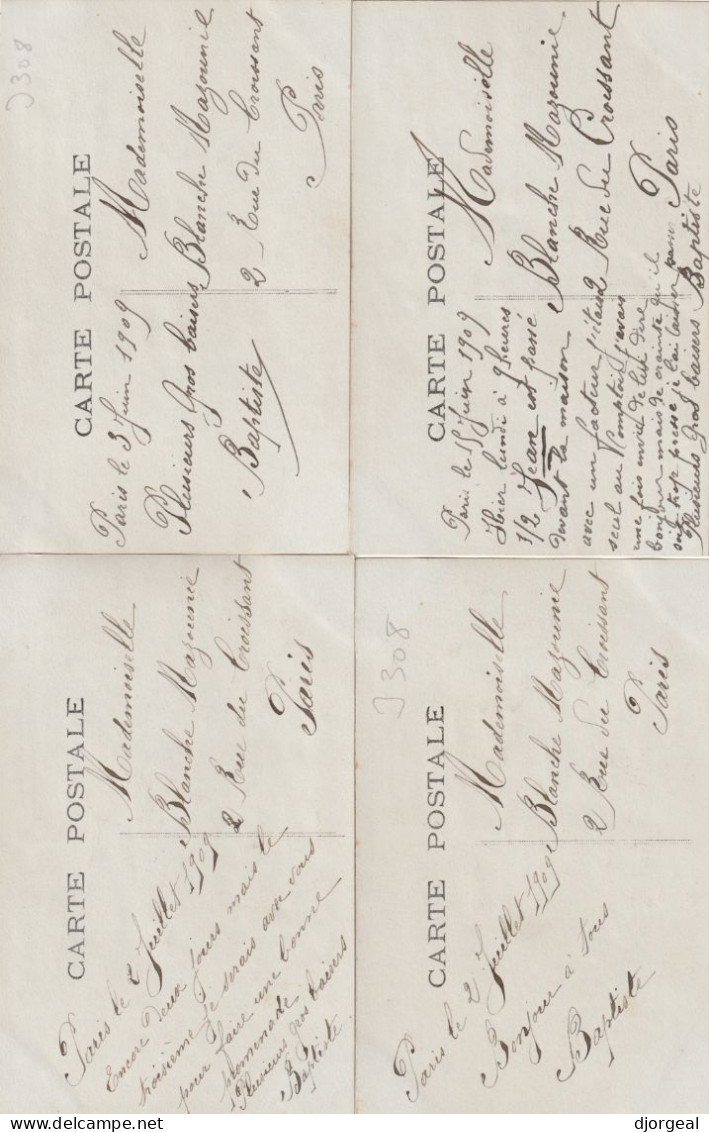 J308
CARTE POSTALE
Paris le 3 Juin 1909
Plusieurs gros baisers
Baptiste
Mademoiselle
Blanche Mazounie
2 Rue du Croissant
Paris
CARTE POSTALE
Paris le 15 Juin 1909
Hier lundi à 9 heures
1/2 Jean est passé
devant la maison
avec un facteur j'étais
seul au Comptoir j'avais
une fois envie de lui dire
bonjour mais de crainte qu'il
soit trop pressé je l'ai laissé
Plusieurs gros baisers Baptiste
Mademoiselle
Blanche Mazounie
2 Rue du Croissant
Paris
CARTE POSTALE
Paris le 2 Juillet 1909
Encore deux jours mais le
troisième je serais avec vous
pour faire une bonne
promenade
Plusieurs gros baisers
Baptiste
Mademoiselle
Blanche Mazounie
2 Rue du Croissant
Paris
J308
CARTE POSTALE
Paris le 2 Juillet 1909
Bonjour à tous
Baptiste
Mademoiselle
Blanche Mazounie
2 Rue du Croissant
Paris
djorgeal